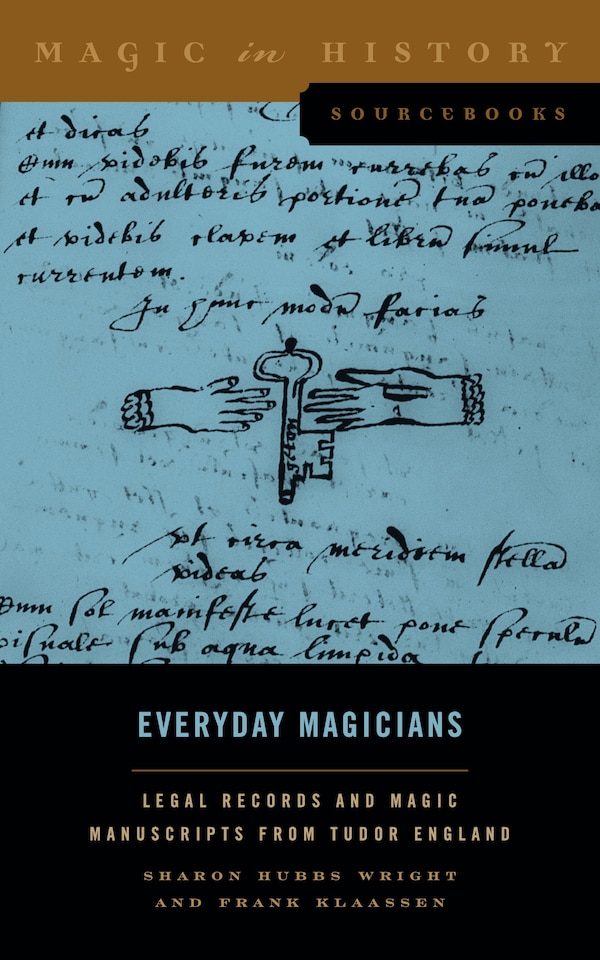 MAGIC in HISTORY
SOURCEBOOKS
et dicas
videbis furem currebas cū illo
et cū adulteris portionē tuā poneba
et videbis clavem et librū simul
currentem.
In hunc modū facias
ut circa meridiem stella
videas
Cum sol manifeste lucet pone speculū
visuale sub aqua limpida
EVERYDAY MAGICIANS
LEGAL RECORDS AND MAGIC
MANUSCRIPTS FROM TUDOR ENGLAND
SHARON HUBBS WRIGHT
AND FRANK KLAASSEN